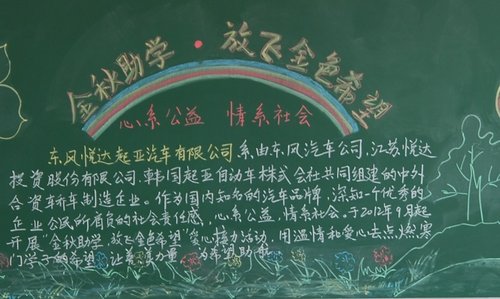 金秋助学·放飞金色希望
心系公益 情系社会
东风悦达起亚汽车有限公司系由东风汽车公司、江苏悦达
投资股份有限公司、韩国起亚自动车株式会社共同组建的中外
合资轿车制造企业。作为国内知名的汽车品牌，深知一个优秀的
企业公民所肩负的社会责任感，心系公益，情系社会。于2012年9月起
开展"金秋助学 放飞金色希望"爱心接力活动，用温情和爱心去点燃寒
门学子的希望，让 力量，为希望助航